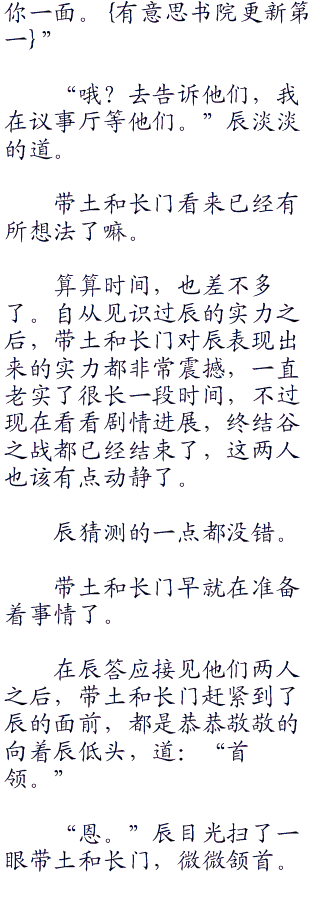 你一面。{有意思书院更新第
一}”
“哦？去告诉他们，我
在议事厅等他们。”辰淡淡
的道。
带土和长门看来已经有
所想法了嘛。
算算时间，也差不多
了。自从见识过辰的实力之
后，带土和长门对辰表现出
来的实力都非常震撼，一直
老实了很长一段时间，不过
现在看看剧情进展，终结谷
之战都已经结束了，这两人
也该有点动静了。
辰猜测的一点都没错。
带土和长门早就在准备
着事情了。
在辰答应接见他们两人
之后，带土和长门赶紧到了
辰的面前，都是恭恭敬敬的
向着辰低头，道：“首
领。”
“恩。”辰目光扫了一
眼带土和长门，微微颔首。